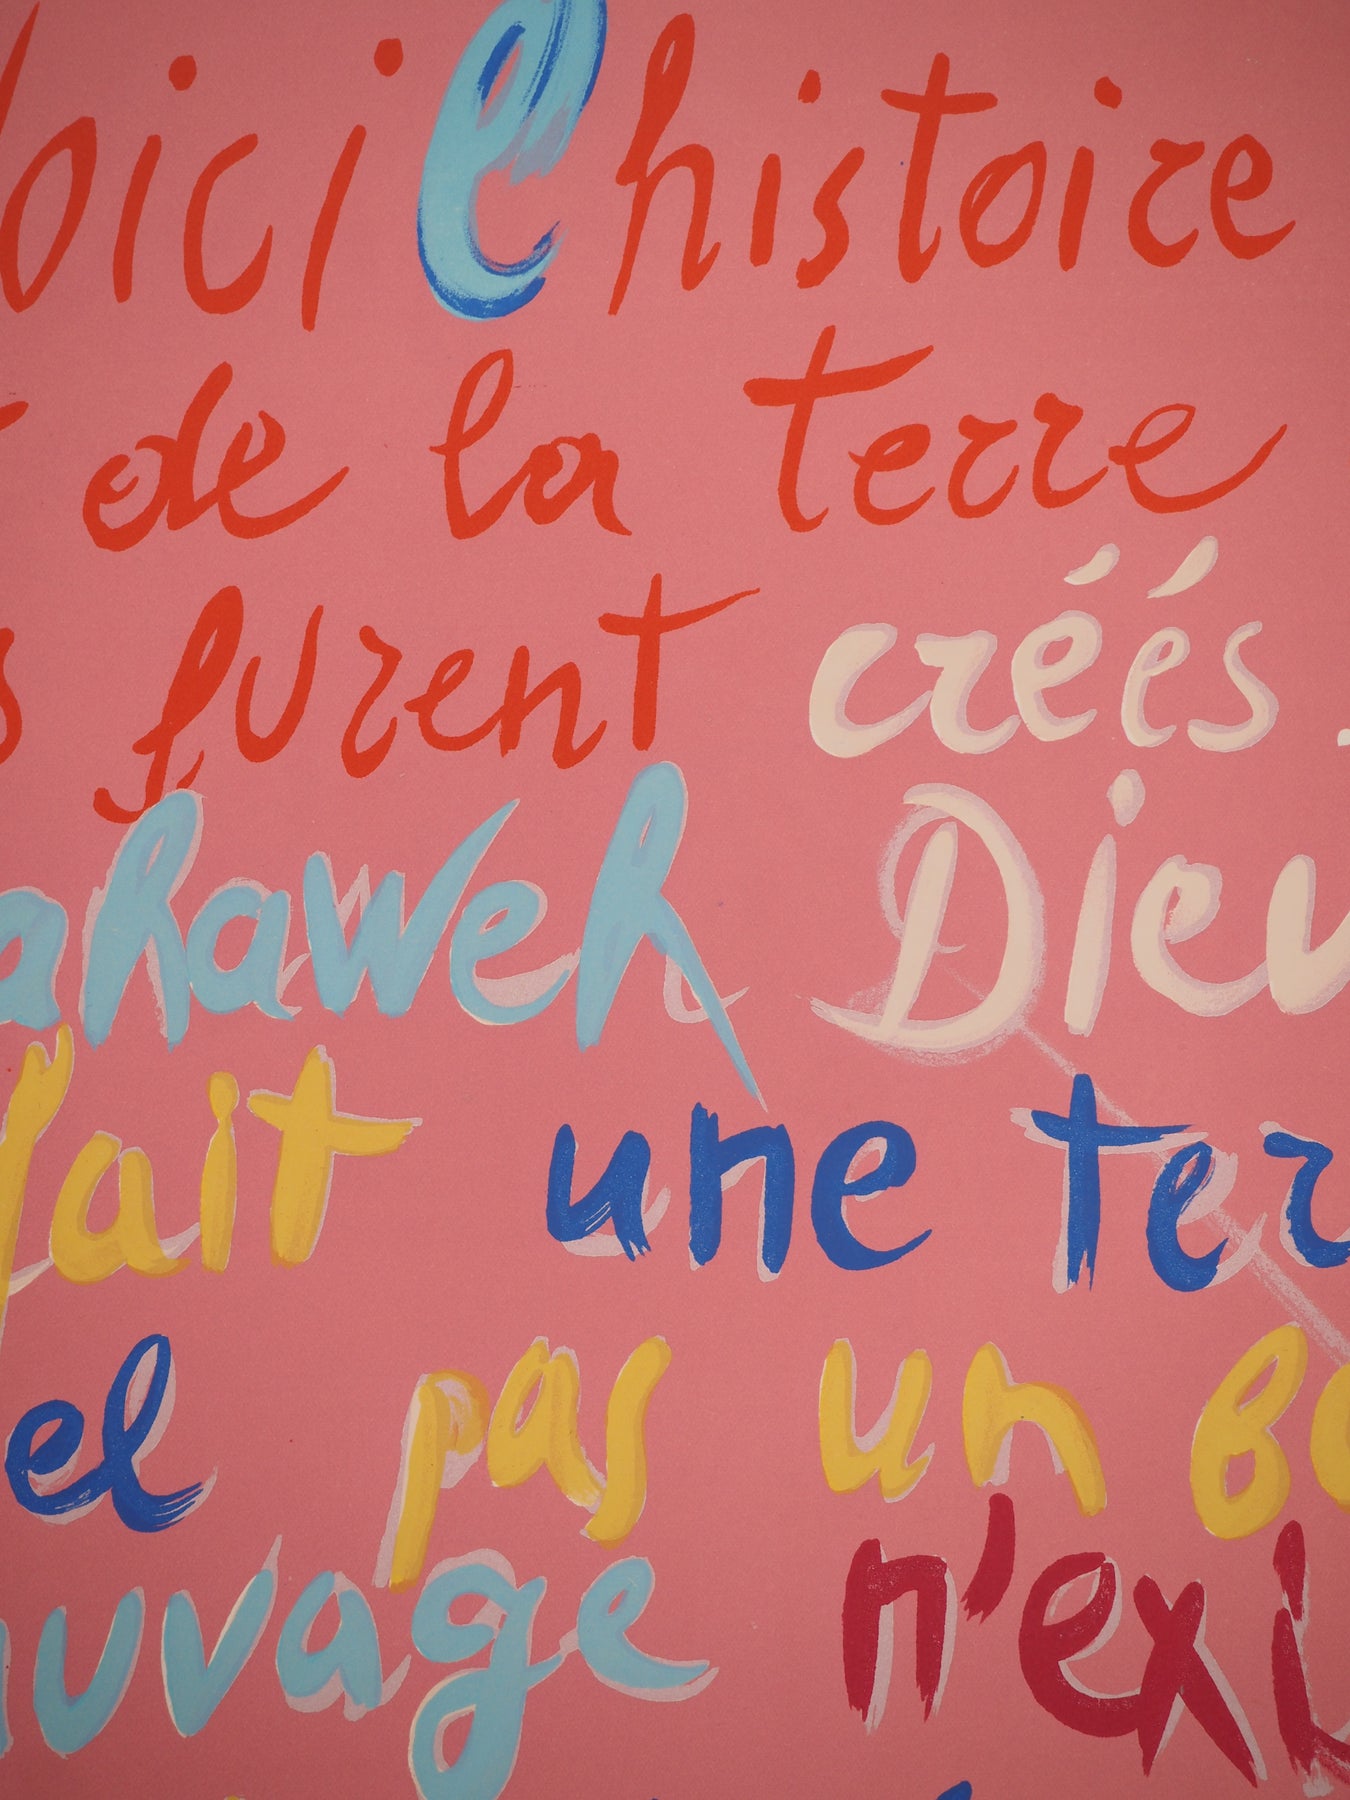 Voici l'histoire
de la terre
furent créés.
ahaweh Dieu
fait une ter
el pas un bo
auvage n'exi